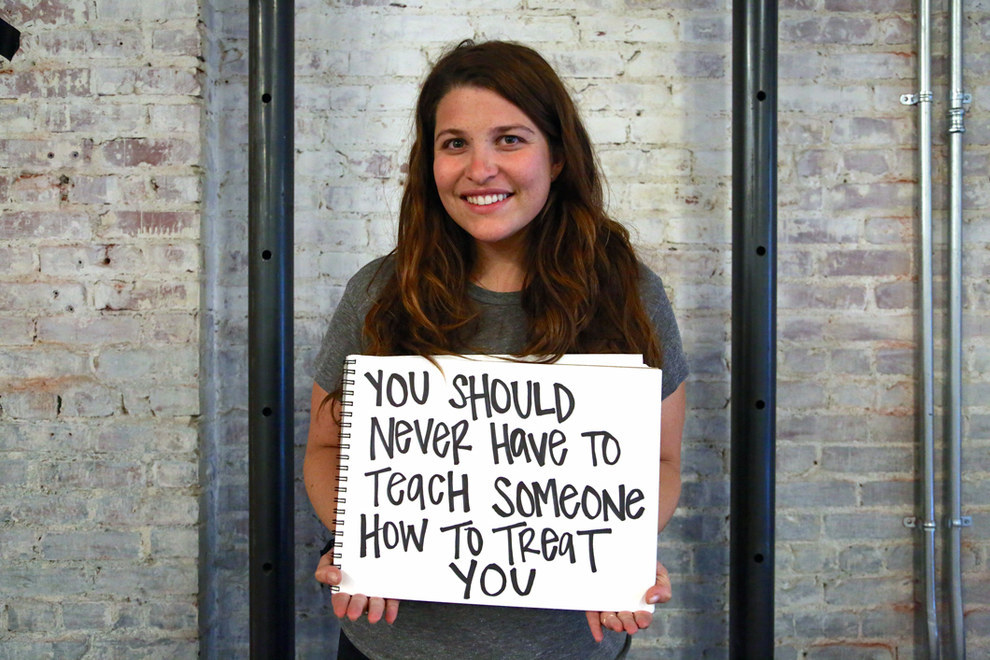 YOU SHOULD
NEVER HAVE TO
TEACH SOMEONE
HOW TO TREAT
YOU